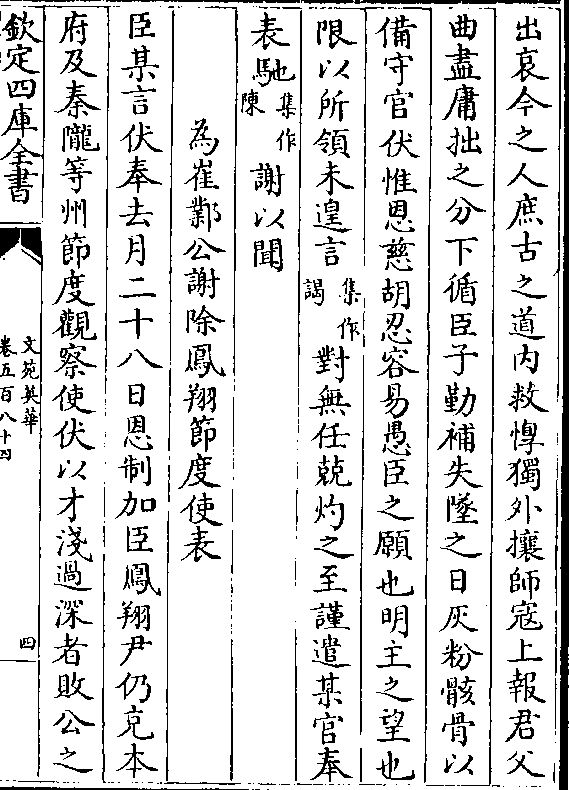 出哀今之人庶古之道内救惸獨外攘師寇上報君父
曲盡庸拙之分下循臣子勤補失墜之日灰粉骸骨以
備守官伏惟恩慈胡忍容易愚臣之願也明主之望也
限以所領未遑言集作謁對無任兢灼之至謹遣某官奉
表馳集作陳謝以聞
為崔鄴公謝除鳳翔節度使表
臣某言伏奉去月二十八日恩制加臣鳳翔尹仍充本
府及秦隴等州節度觀察使伏以才淺過深者敗公之
欽定四庫全書
文苑英華
卷五百八十四
四